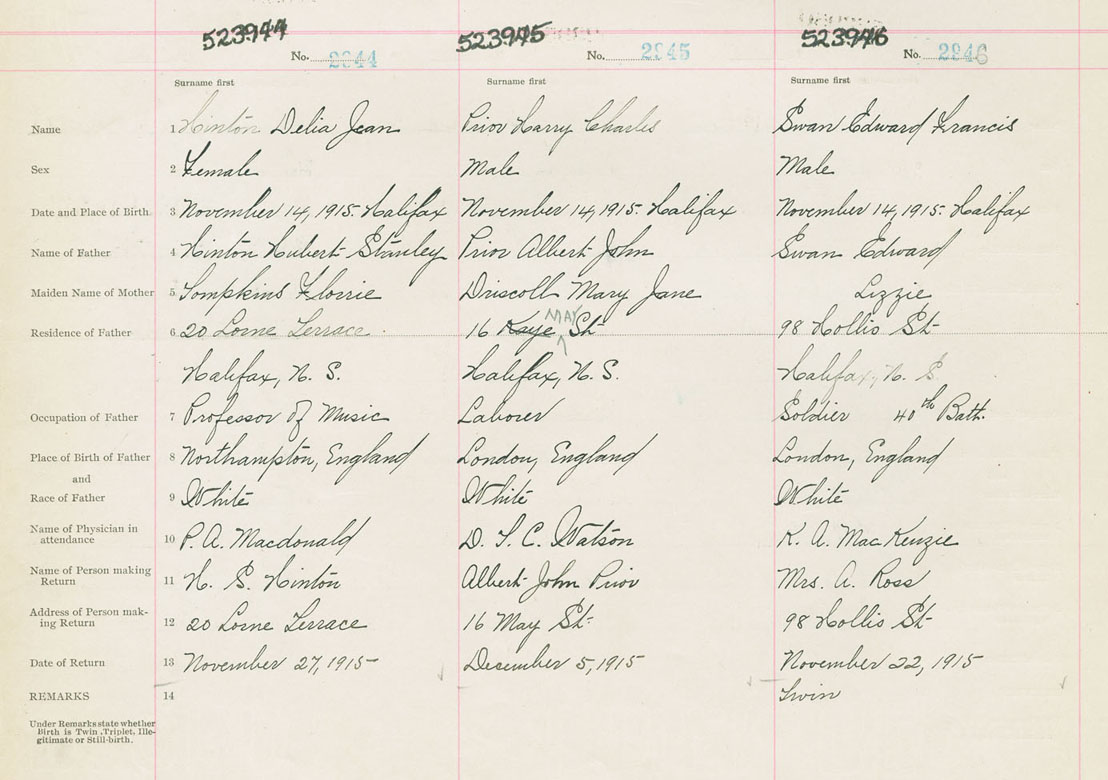 523944 523945 523946
No. 2944 No. 2945 No. 2946
Surname first Surname first Surname first
Name 1 Hinton Delia Jean Prior Harry Charles Swan Edward Francis
Sex 2 Female Male Male
Date and Place of Birth 3 November 14, 1915. Halifax November 14, 1915. Halifax November 14, 1915. Halifax
Name of Father 4 Hinton Hubert Stanley Prior Albert John Swan Edward
Maiden Name of Mother 5 Tompkins Florrie Driscoll Mary Jane Lizzie
MAY
Residence of Father 6 20 Lorne Terrace. 16 Kaye St 98 Hollis St
Halifax, N. S. Halifax, N. S. Halifax, N. S.
Occupation of Father 7 Professor of Music Laborer Soldier 40th Batt.
Place of Birth of Father 8 Northampton, England London, England London, England
and
Race of Father 9 White White White
Name of Physician in
attendance 10 P. A. Macdonald D. T. C. Watson K. A. MacKenzie
Name of Person making
Return 11 H. S. Hinton Albert John Prior Mrs. A. Ross
Address of Person mak-
ing Return 12 20 Lorne Terrace 16 May St 98 Hollis St
Date of Return 13 November 27, 1915 December 5, 1915 November 22, 1915
REMARKS 14 Twin
Under Remarks state whether
Birth is Twin, Triplet, Ille-
gitimate or Still-birth.